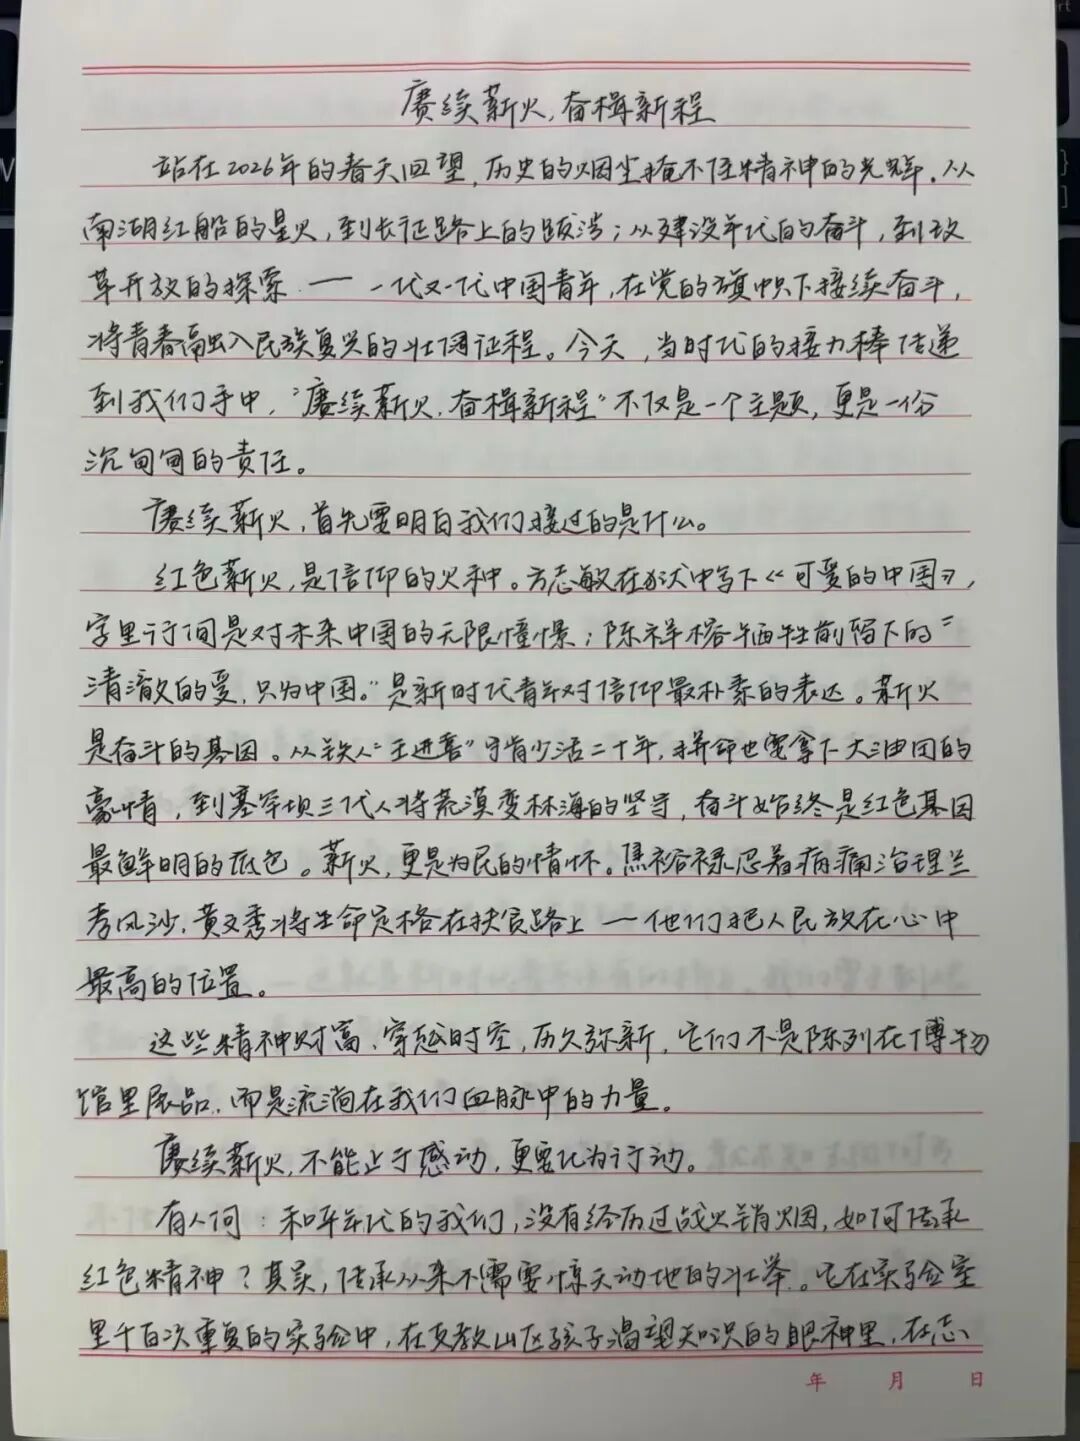 赓续薪火,奋楫新程
站在2026年的春天回望,历史的烟尘掩不住精神的光辉。从
南湖红船的星火,到长征路上的跋涉;从建设年代的奋斗,到改
革开放的探索——一代又一代中国青年,在党的旗帜下接续奋斗,
将青春融入民族复兴的壮阔征程。今天,当时代的接力棒传递
到我们手中,“赓续薪火,奋楫新程”不仅是一个主题,更是一份
沉甸甸的责任。
赓续薪火,首先要明白我们接过的是什么。
红色薪火,是信仰的火种。方志敏在狱中写下《可爱的中国》,
字里行间是对未来中国的无限憧憬;陈祥榕牺牲前留下的“
清澈的爱,只为中国。”是新时代青年对信仰最朴素的表达。薪火
是奋斗的基因。从铁人“王进喜”宁肯少活二十年,拼命也要拿下大油田的
豪情,到塞罕坝三代人将荒漠变林海的坚守,奋斗始终是红色基因
最鲜明的底色。薪火,更是为民的情怀。焦裕禄忍着病痛治理兰
考风沙,黄文秀将生命定格在扶贫路上——他们把人民放在心中
最高的位置。
这些精神财富,穿越时空,历久弥新,它们不是陈列在博物
馆里展品,而是流淌在我们血脉中的力量。
赓续薪火,不能止于感动,更要化为行动。
有人问:和平年代的我们,没有经历过战火硝烟,如何传承
红色精神?其实,传承从来不需要惊天动地的壮举。它在实验室
里千百次重复的实验中,在支教山区孩子渴望知识的眼神里,在志
年 月 日